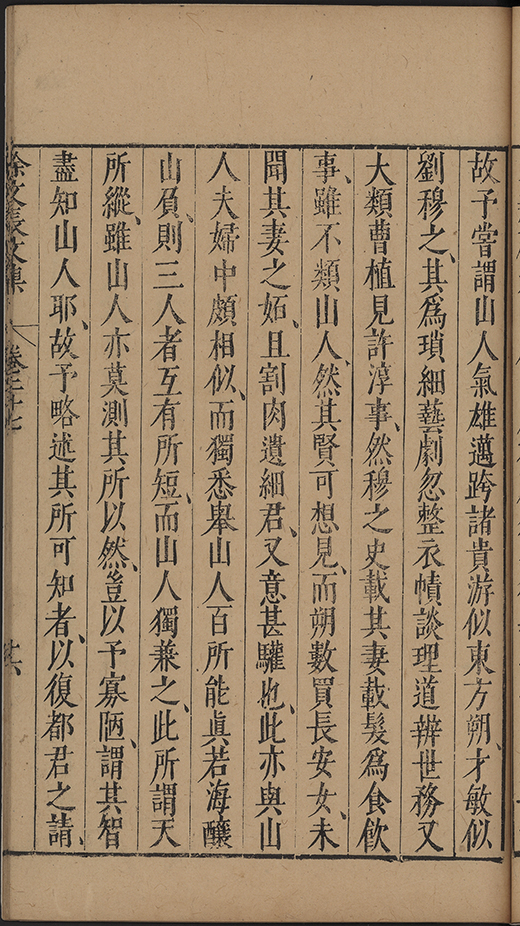 故予嘗謂山人氣雄邁跨諸貴游似東方朔、才敏似
劉穆之、其爲瑣細藝劇忽整衣幘談理道辨世務又
大類曹植見許淳事、然穆之史載其妻截髮爲食飲
事、雖不類山人、然其賢可想見、而朔數買長安女、未
聞其妻之妬、且割肉遺細君、又意甚驩也、此亦與山
人夫婦中頗相似、而獨悉舉山人百所能眞若海釀
山負、則三人者互有所短、而山人獨兼之、此所謂天
所縱、雖山人亦莫測其所以然、豈以予寡陋、謂其智
盡知山人耶、故予略述其所可知者、以復都君之請、
徐文長文集 卷二十七